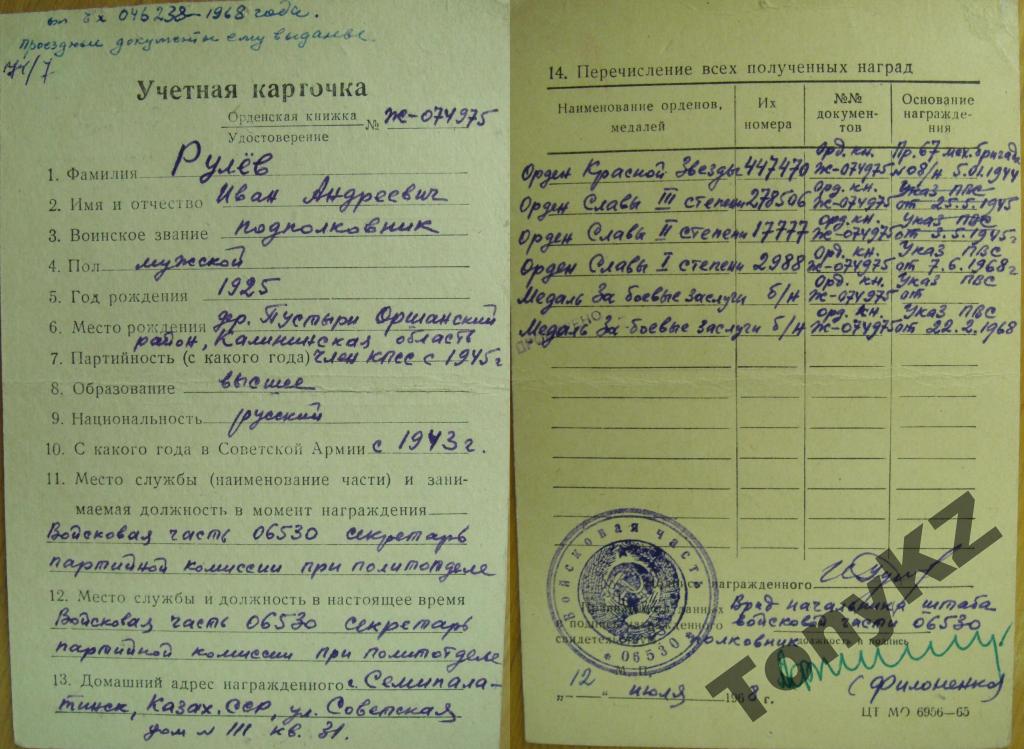 вх 046238-1968 года.
проездные документы ему выданы.
Учетная карточка
Орденская книжка
Удостоверение № Ж-074975
1. Фамилия Рулёв
2. Имя и отчество Иван Андреевич
3. Воинское звание подполковник
4. Пол мужской
5. Год рождения 1925
6. Место рождения дер. Пустыри Оршанский
район, Калининская область
7. Партийность (с какого года) член КПСС с 1945г
8. Образование высшее
9. Национальность русский
10. С какого года в Советской Армии с 1943г.
11. Место службы (наименование части) и зани-
маемая должность в момент награждения
Войсковая часть 06530 секретарь
партийной комиссии при политотделе
12. Место службы и должность в настоящее время
Войсковая часть 06530 секретарь
партийной комиссии при политотделе
13. Домашний адрес награжденного г. Семипала-
тинск, Казах. ССР, ул. Советская
дом № 111 кв. 31.
14. Перечисление всех полученных наград
Наименование орденов, медалей
Их номера
№№ документов
Основание награждения
Орден Красной Звезды 447470 Орд. кн. Ж-074975 Пр. 67 мех. бригады №08/н 5.01.1944
Орден Славы III степени 278506 орд. кн. Ж-074975 Указ ПВС от 25.5.1945
Орден Славы II степени 17777 орд. кн. Ж-074975 Указ ПВС от 3.5.1945г
Орден Славы I степени 2988 Орд. кн. Ж-074975 Указ ПВС от 7.6.1968г
Медаль За боевые заслуги б/н орд. кн. Ж-074975 Указ ПВС от
Медаль За боевые заслуги б/н орд. кн. Ж-074975 от 22.2.1968
Войсковая часть
* 06530 *
Подпись награжденного
Врид начальника штаба
войсковой части 06530
полковник
должность и подпись
М. П.
(Филоненко)
„12" июля 1968 г.
ЦТ МО 6956—65
TomyKZ